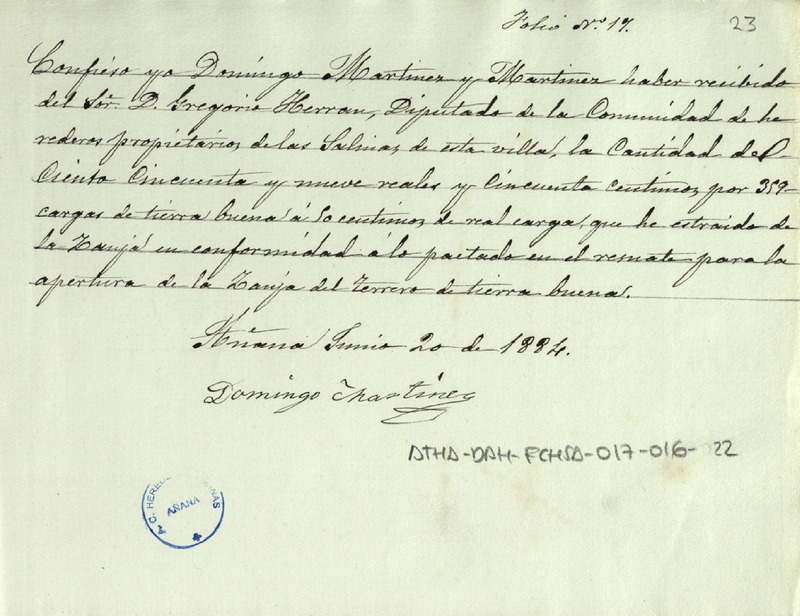 Folio No. 17.
23
Confieso yo Domingo Martinez y Martinez haber recibido
del Sor. D. Gregorio Herran, Diputado de la Comunidad de he
rederos propietarios de las Salinas de esta villa, la Cantidad de
Ciento Cincuenta y nueve reales y Cincuenta centimos por 319-
cargas de tierra buena á 50 centimos de real carga, que he estraido de
la Zanja en conformidad á lo pactado en el remate para la
apertura de la Zanja del terrero de tierra buena.
Añana Junio 20 de 1884.
Domingo Martinez
ATHA-DAH-FCHSA-017-016-22
C. HERED
NAS
AÑANA